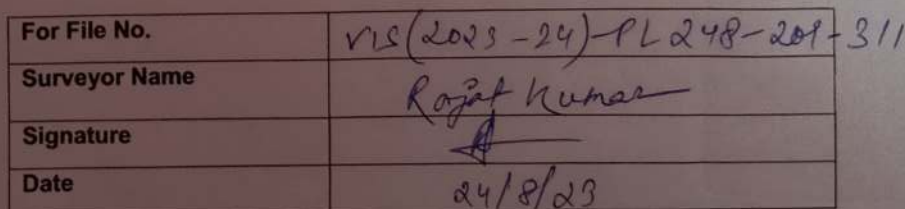 For File No. VIS(2023-24)-PL248-201-311
Surveyor Name Rajat Kumar
Signature
Date 24/8/23